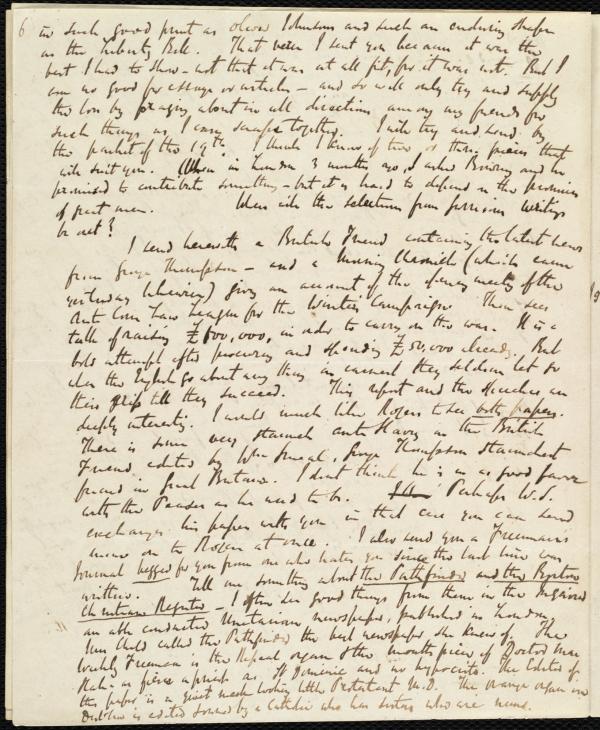 6 in such good print as Johnsons and such an enduring shape
as the Liberty Bell. That verse I sent you because it was the
best I had to show - not that it was at all fit, for it was not. But I
am no good for essays or articles - and so will only try and supply
the loss by praying about in all directions among my friends for
such things as I can scrape together. I will try and send by
the packet of the 19th. I think I know of two or three pieces that
will suit you. When in London 3 months ago, I asked Bowring and he
promised to contribute something - but it is hard to depend on the promises
of great men. When will the selections from Garrisons Writings
be out?
I send herewith a British Friend containing the latest news
from George Thompson - and a Morning Chronicle (which came
yesterday ) giving an account of the opening meeting of the
Anti Corn Law League for the Winter Campaign. Then see
talk of raising £100,000, in order to carry on the war. It is a
bold attempt after procuring and spending £50,000 already. But
when the English go about any thing in earnest they seldom let go
their grip till they succeed. This report and the speeches are
deeply interesting. I would much like Rogers to see both papers.
There is some very staunch anti Slavery in the British
Friend edited by Wm Smeal, George Thompson's staunchest
friend in Great Britain. I dont think he is in as good favor
with the Peases as he used to be. Perhaps W.S.
exchanges his paper with you in that case you can send
mine on to Rogers at once. I also send you a Freemans
Journal begged for you from one who hates you since the last line was
written. Tell me something about the Pathfinder and the Boston
Christian Register - I often see good things from them in the Inquirer
an able conducted Unitarian newspaper, published in London.
Mrs Child called the Pathfinder the best newspaper she knew of. The
Weekly Freeman is the Repeal organ & the mouthpiece of Doctor Mac
Hale as fierce a priest as St Dominic and no hypocrite. The Editor of
this paper is a quiet meek looking little Protestant M.D. The orange organ in
Dublin is edited by a Catholic who has sisters who are nuns.